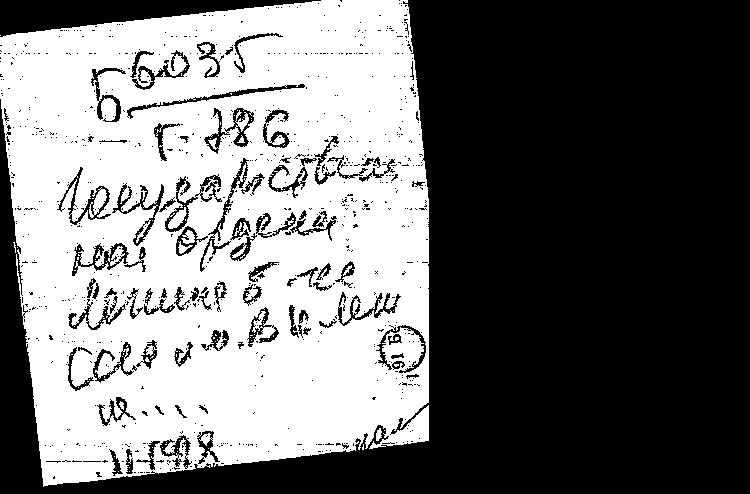 Б 6035
Г-786
Государствен
ная ордена
Ленина б-ка
СССР им. В И Лени
на....